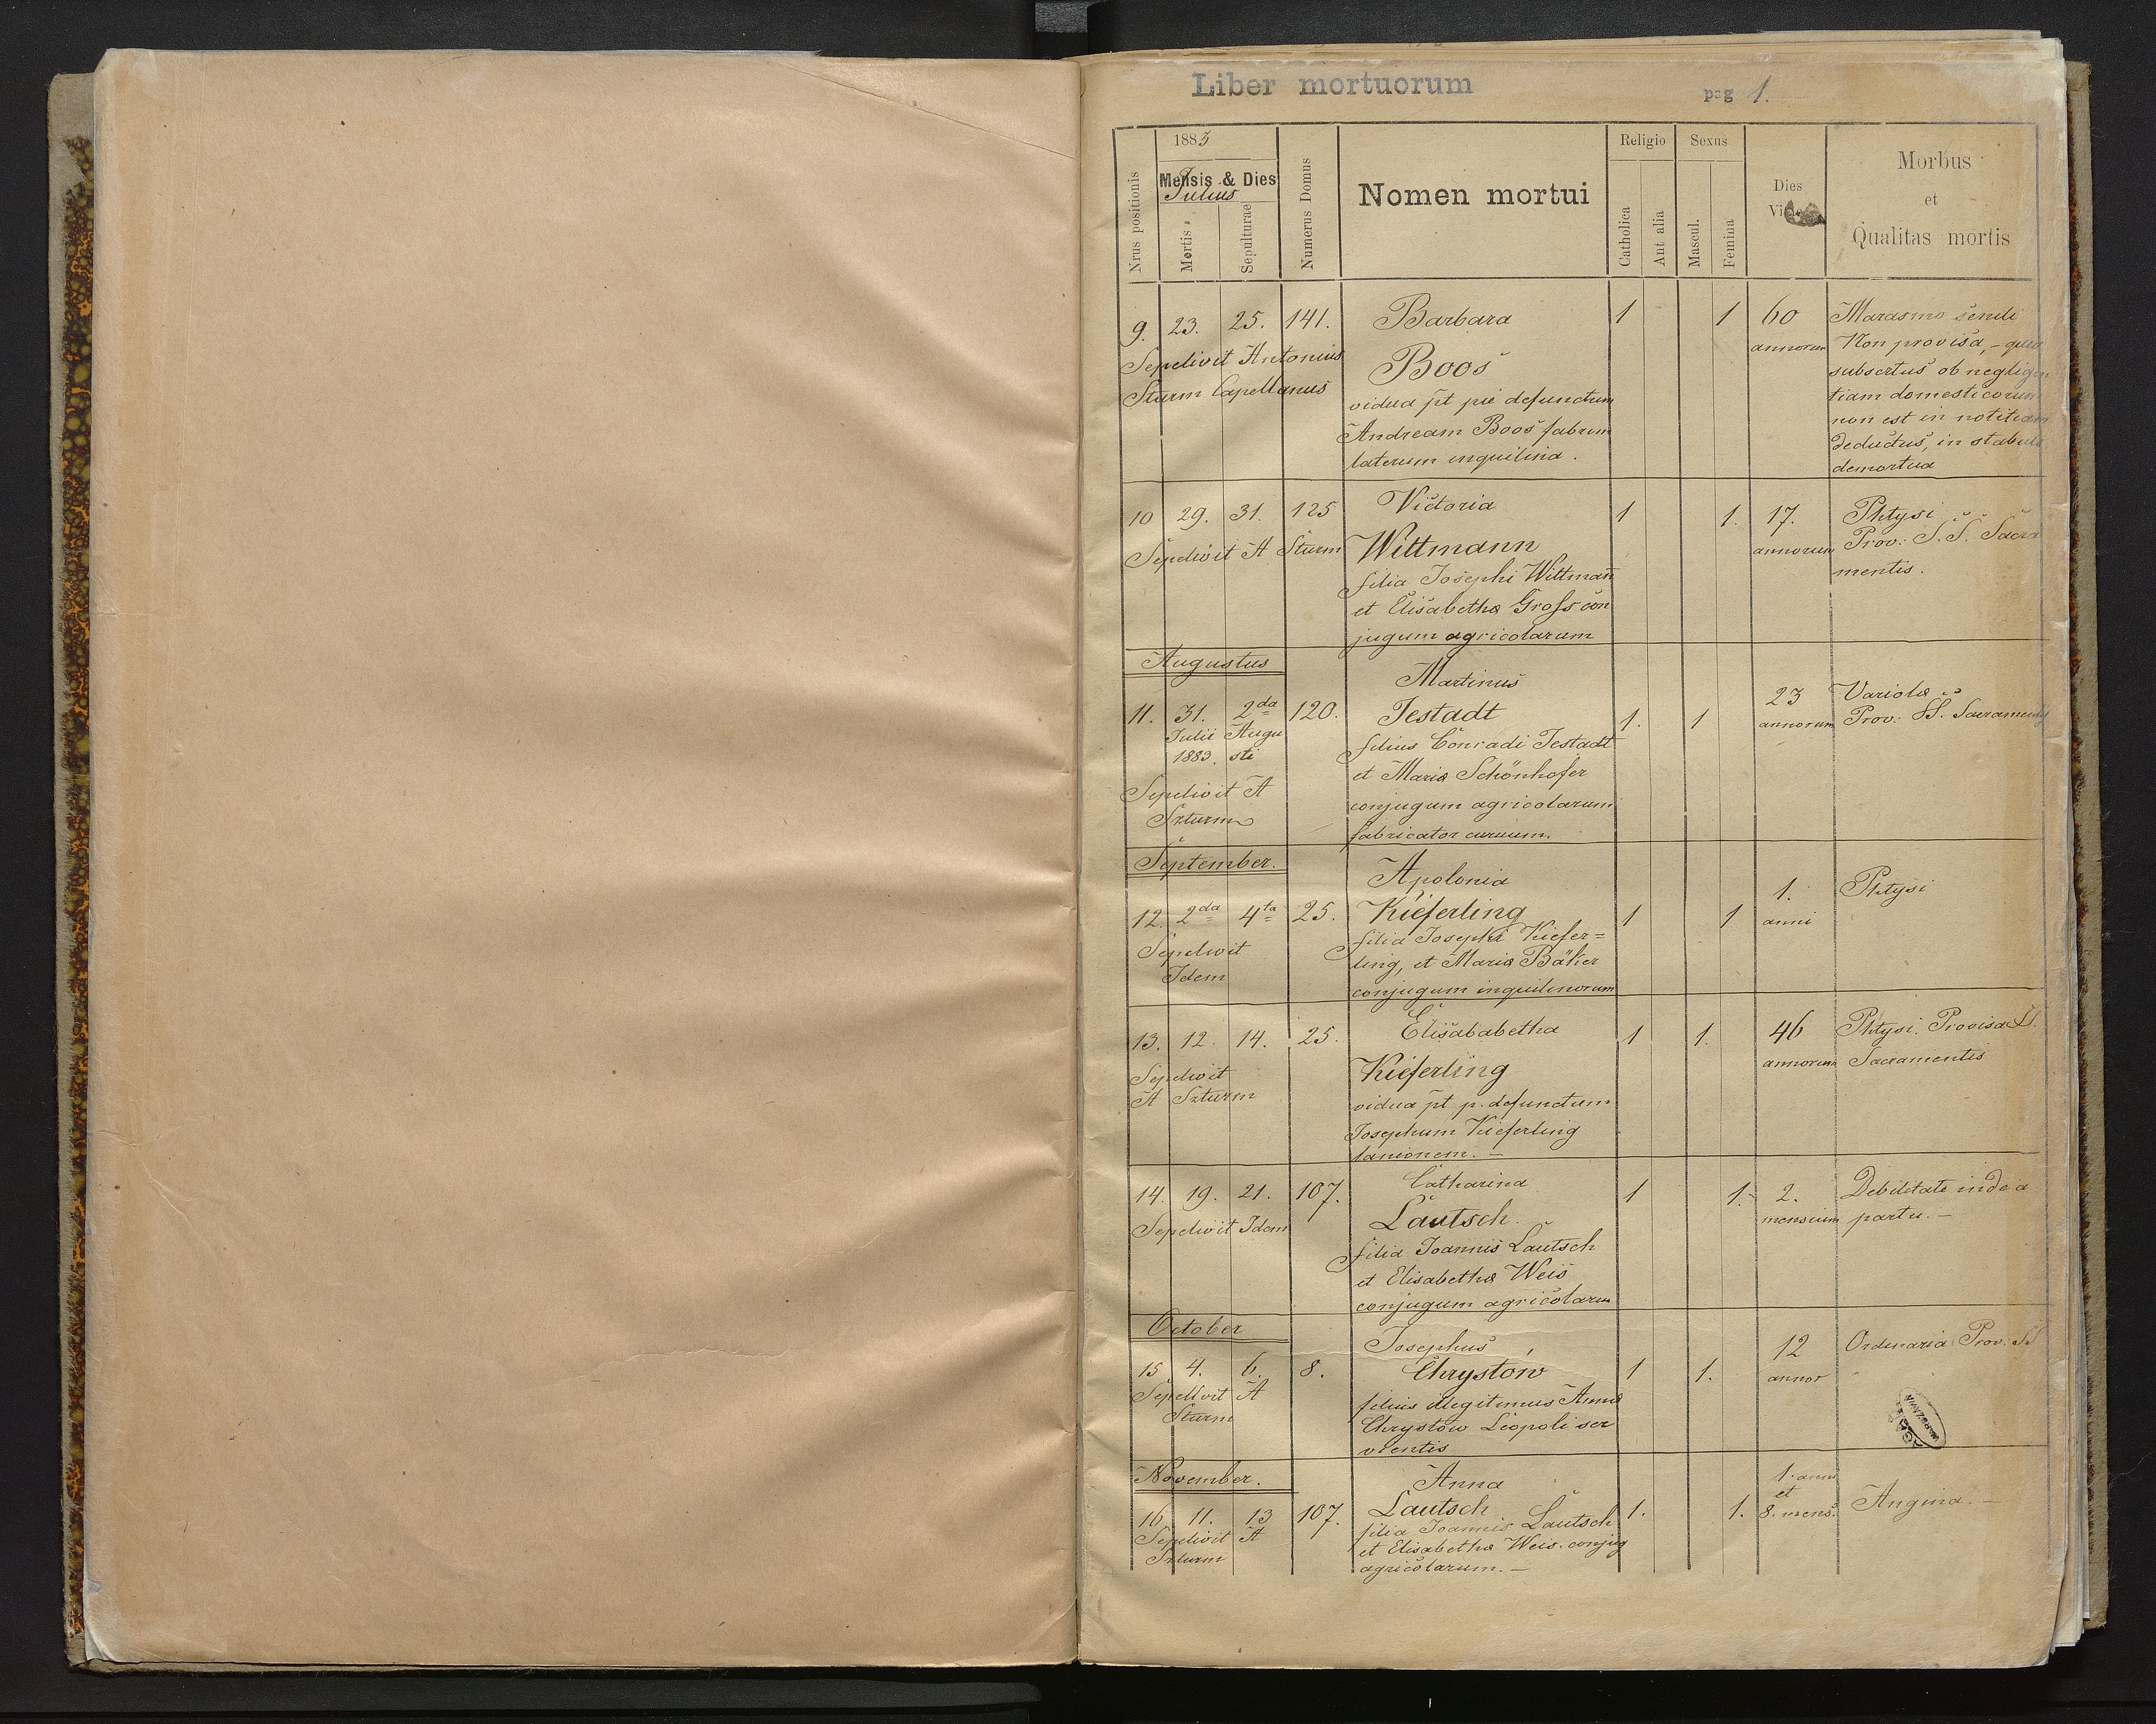 Liber mortuorum
pag 1.
Nrus positionis
1883
Mensis & Dies
Julius
Mortis
Sepulturae
Numerus Domus
Nomen mortui
Religio
Catholica
Aut alia
Sexus
Mascul.
Femina
Dies
Morbus
et
Qualitas mortis
9. 23. 25. 141. Barbara 1 1 60 Marasmo senili
Sepelivit Antonius Boos annorum Non provisa, - quia
Sturm Capellanus vidua pt pie defunctum subsertus ob negligen
Andream Boos fabrum tiam domesticorum
laterum inquilina. non est in notitiam
deductus, in stabulo
demortua
10 29. 31. 125 Victoria 1 1. 17. Phtysi
Sepelivit A Sturm Wittmann annorum Prov: S. S. Sacra
filia Josephi Wittmann mentis.
et Elisabetha Gross con
jugum agricolarum
Augustus
Martinus
11. 31. 2da 120. Jestadt 1. 1 23 Variola
Julii Augu filius Conradi Jestadt annorum Prov: SS. Sacramentis
1883. sti et Maria Schönhofer
Sepelivit A conjugum agricolarum
Szturm fabricator
September.
Apolonia
12. 2da 4ta 25. Kieferling 1 1 1. Phtysi
Sepelivit filia Josephi Kiefer= anni
Idem ling, et Maria Bäker
conjugum inquilinorum
13. 12. 14. 25. Elisababetha 1 1. 46 Phtysi. Provisa SS.
Sepelivit Kieferling annorum Sacramentis
A Szturm vidua pt p. defunctum
Josephum Kieferling
lanionem. -
14. 19. 21. 107. Catharina 1 1. 2. Debilitate inde a
Sepelivit Idem Lautsch. mensium partu. -
filia Joannis Lautsch
et Elisabetha Weis
conjugum agricolarum
October
Josephus
15 4. 6. 8. Chrystów 1 1. 12 Ordinaria Prov: SS
Sepelivit A filius illegitimus Anna annor
Sturm Chrystów Leopoli ser
vientis
November.
Anna
16 11. 13 107. Lautsch 1. 1. 1. anni et 8. mens. Angina. -
Sepelivit A filia Joannis Lautsch
Szturm et Elisabetha Weis. conjug
agricolarum. -